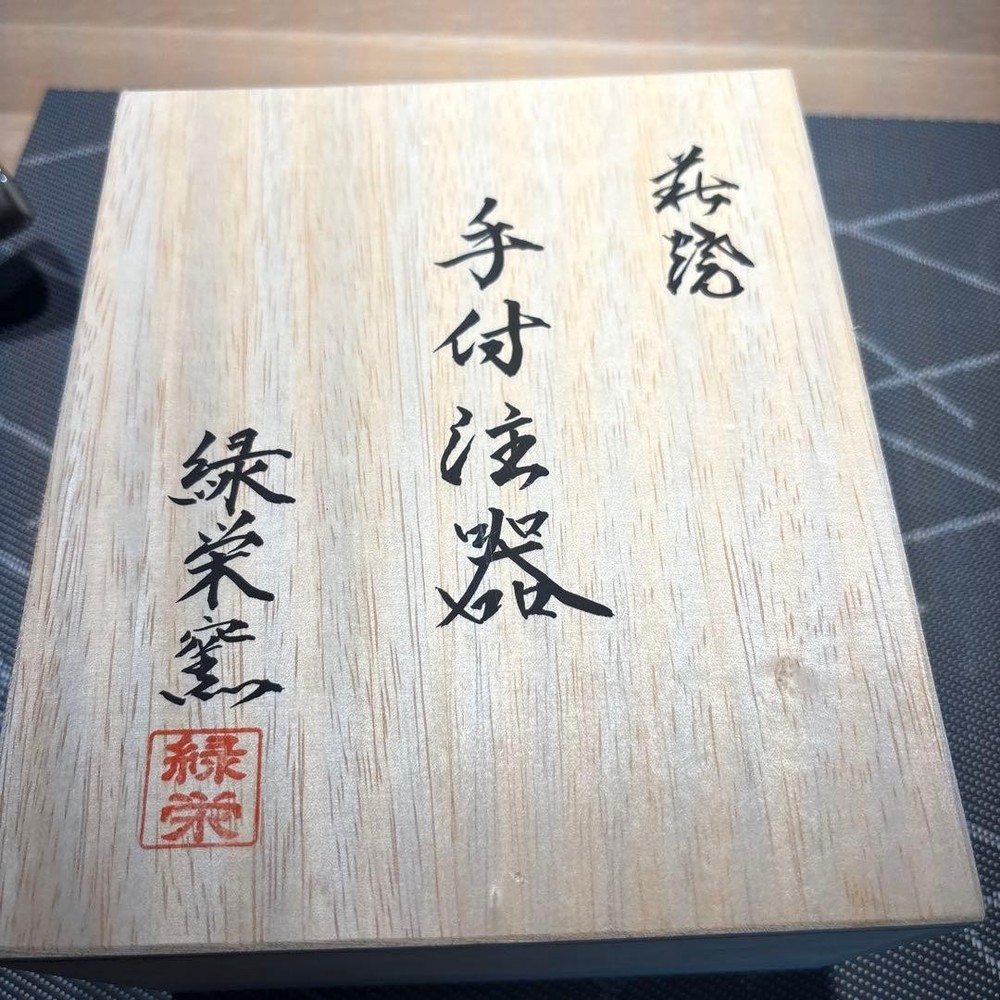 萩焼
手付注器
緑栄窯
緑栄